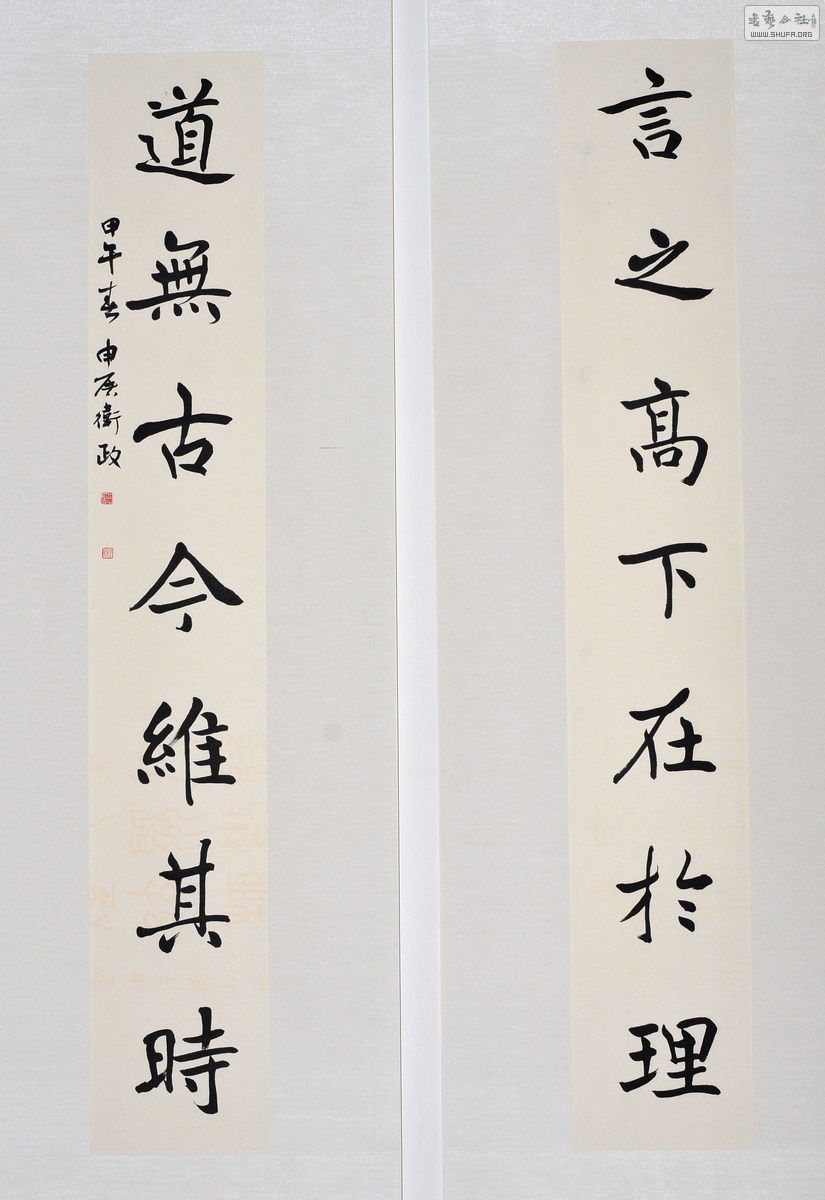 言之高下在於理
道無古今維其時
甲午春 申居衛政
書藝公社
WWW.SHUFA.ORG